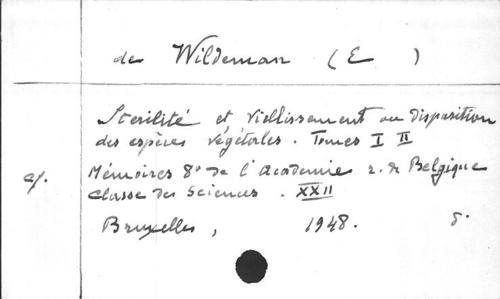 de Wildeman (E )
Stérilité et viellissement ou disparition
des espèces végétales. Tomes I II
cf. Mémoires 8° de l'Academie r. de Belgique
Classe des Sciences. XXII
Bruxelles, 1948. 8.